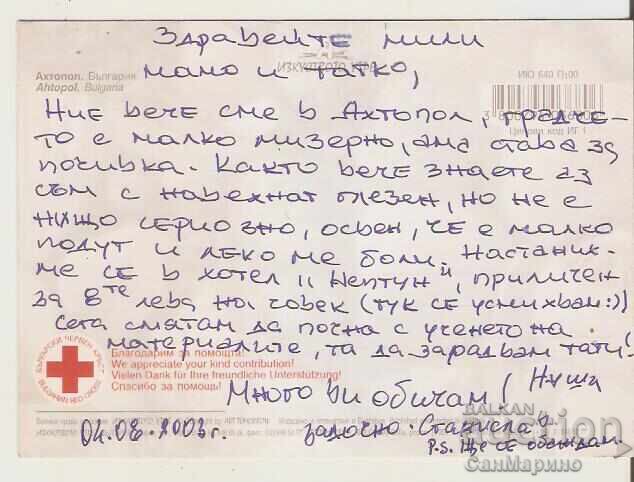 Здравейте мили
мамо и татко,
Ахтопол. България
Ahtopol. Bulgaria
ИЮ 640 П:00
Ценови код ИГ 1
Ние вече сме в Ахтопол, градче-
то е малко мизерно, ама става за
почивка. Както вече знаете аз
съм с навехнат глезен, но не е
нищо сериозно, освен, че е малко
подут и леко ме боли. Настаних-
ме се в хотел "Нептун", приличен
за 8те лева на човек (тук се усмихвам:))
Сега смятам да почна с ученето на
материалите, та да зарадвам тати!
БЪЛГАРСКИ ЧЕРВЕН КРЪСТ
BULGARIAN RED CROSS
Благодарим за помощта!
We appreciate your kind contribution!
Vielen Dank für Ihre freundliche Unterstützung!
Спасибо за помощь!
Много ви обичам!
04.08.2003г.
задочно: Станислав
P.S. Ще се обаждам.
BALKAN
auction
СанМарино